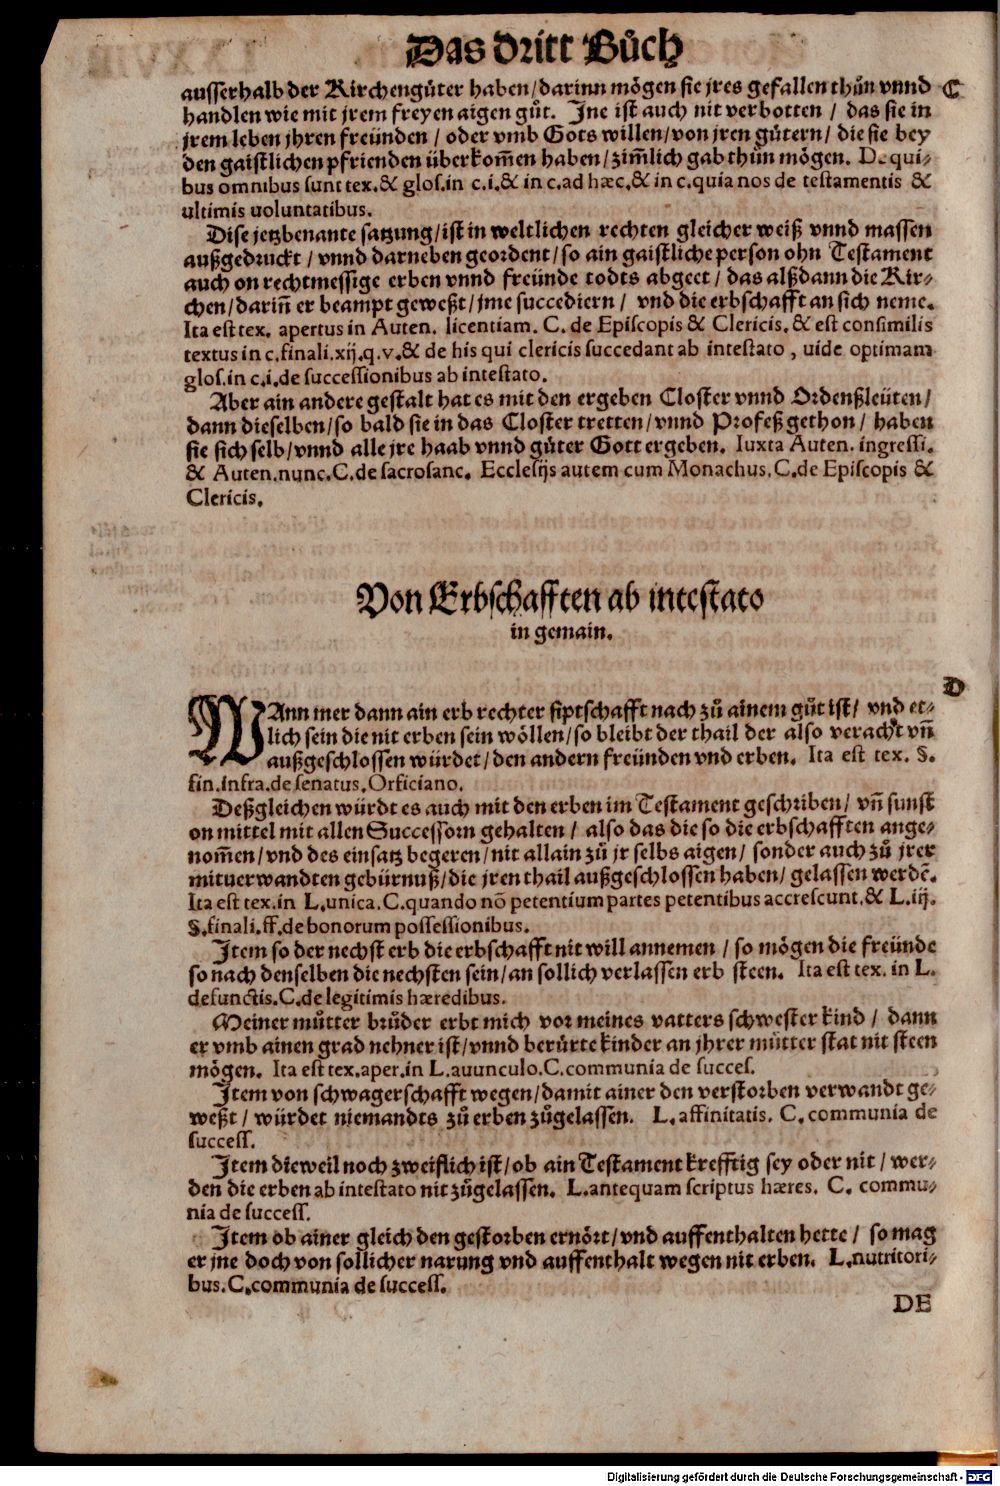 Das dritt Bůch
ausserhalb der Kirchengüter haben/darinn mögen sie jres gefallen thůn vnnd C
handlen wie mit jrem freyen aigen gůt. Jne ist auch nit verbotten / das sie in
jrem leben jhren freünden / oder vmb Gots willen/von jren gütern/ die sie bey
den gaistlichen pfrienden überkom̃en haben/zim̃lich gab thůn mögen. De qui-
bus omnibus sunt tex.& glos.in c.i.& in c.ad hæc.& in c.quia nos de testamentis &
ultimis uoluntatibus.
Dise jetzbenante satzung/ist in weltlichen rechten gleicher weiß vnnd massen
außgedruckt / vnnd darneben geordent/so ain gaistliche person ohn Testament
auch on rechtmessige erben vnnd freünde todts abgeet / das alßdann die Kir-
chen/darin̄ er beampt geweßt/jme succediern / vnd die erbschafft an sich neme.
Ita est tex. apertus in Auten. licentiam. C. de Episcopis & Clericis. & est consimilis
textus in c.finali.xij.q.v.& de his qui clericis succedant ab intestato , uide optimam
glos.in c.i.de successionibus ab intestato.
Aber ain andere gestalt hat es mit den ergeben Closter vnnd Ordenßleüten/
dann dieselben/so bald sie in das Closter tretten/vnnd Profeß gethon/ haben
sie sich selb/vnnd alle jre haab vnnd güter Gott ergeben. Iuxta Auten. ingressi.
& Auten.nunc.C.de sacrosanc. Ecclesijs autem cum Monachus.C.de Episcopis &
Clericis.
Von Erbschafften ab intestato
in gemain.
D
WAnn mer dann ain erb rechter siptschafft nach zů ainem gůt ist/ vnd et-
lich sein die nit erben sein wöllen/so bleibt der thail der also veracht vn̄
außgeschlossen würdet/den andern freünden vnd erben. Ita est tex. §.
fin.infra.de senatus.Orficiano.
Deßgleichen würdt es auch mit den erben im Testament geschriben/ vn̄ sunst
on mittel mit allen Successorn gehalten / also das die so die erbschafften ange-
nom̃en/vnd des einsatz begeren/nit allain zů jr selbs aigen/ sonder auch zů jrer
mituerwandten gebürnuß/die jren thail außgeschlossen haben/gelassen werdē.
Ita est tex.in L.unica.C.quando nō petentium partes petentibus accrescunt.& L.iij.
§.finali.ff.de bonorum possessionibus.
Jtem so der nechst erb die erbschafft nit will annemen / so mögen die freünde
so nach denselben die nechsten sein/an sollich verlassen erb steen. Ita est tex. in L.
defunctis.C.de legitimis hæredibus.
Meiner můtter brůder erbt mich vor meines vatters schwester kind / dann
er vmb ainen grad nehner ist/vnnd berürte kinder an jhrer můtter stat nit steen
mögen. Ita est tex.aper.in L.auunculo.C.communia de succes.
Jtem von schwagerschafft wegen/damit ainer den verstorben verwandt ge-
weßt / würdet niemandts zů erben zůgelassen. L.affinitatis. C. communia de
success.
Jtem dieweil noch zweiflich ist/ob ain Testament krefftig sey oder nit / wer-
den die erben ab intestato nit zůgelassen. L.antequam scriptus hæres. C. commu-
nia de success.
Jtem ob ainer gleich den gestorben ernört/vnd auffenthalten hette / so mag
er jne doch von sollicher narung vnd auffenthalt wegen nit erben. L.nutritori-
bus.C.communia de success.
DE
Digitalisierung gefördert durch die Deutsche Forschungsgemeinschaft - DFG